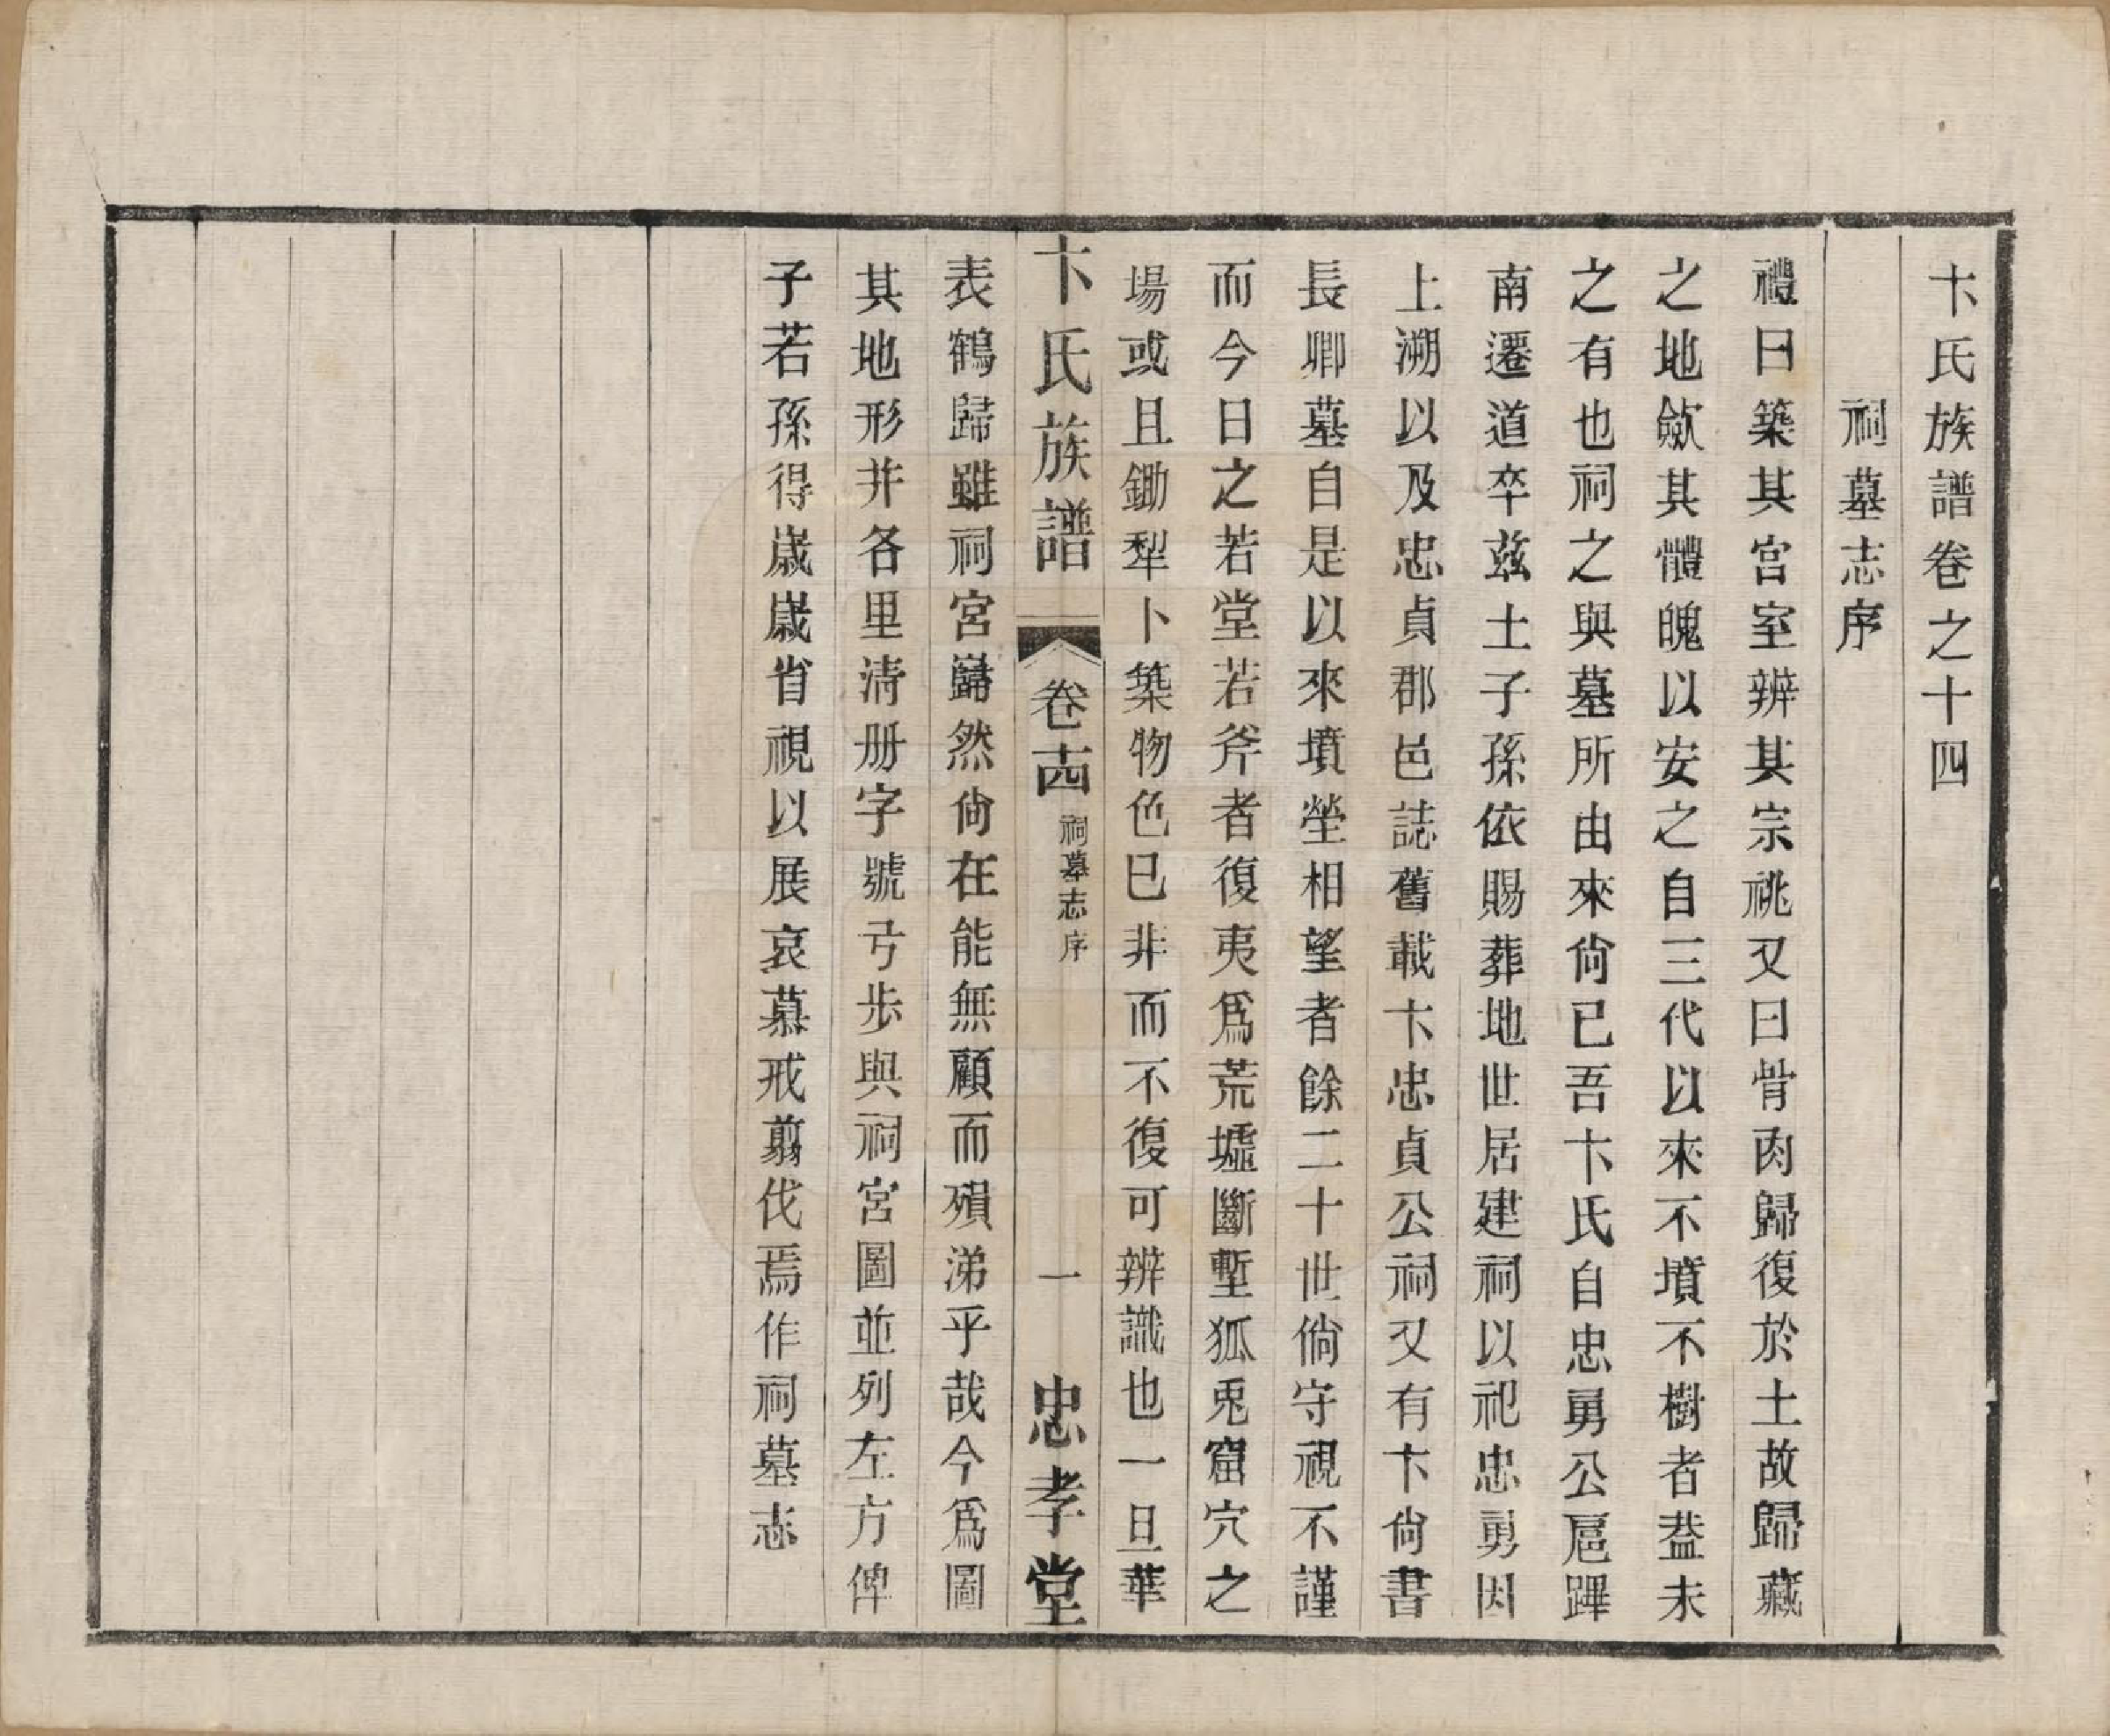 卞氏族譜卷之十四
祠墓志序
禮曰築其宮室辨其宗祧又曰骨肉歸復於土故歸藏
之地斂其體魄以安之自三代以來不墳不樹者葢未
之有也祠之與墓所由來尙已吾卞氏自忠勇公扈蹕
南遷道卒茲土子孫依賜葬地世居建祠以祀忠勇因
上溯以及忠貞郡邑誌舊載卞忠貞公祠又有卞尙書
長卿墓自是以來墳塋相望者餘二十世倘守視不謹
而今日之若堂若斧者復夷爲荒墟斷塹狐兎窟穴之
場或且鋤犁卜築物色已非而不復可辨識也一旦華
卞氏族譜
卷十四
祠墓志序
一
忠孝堂
表鶴歸雖祠宮巋然尙在能無顧而殞涕乎哉今爲圖
其地形并各里淸册字號弓步與祠宮圖並列左方俾
子若孫得歲歲省視以展哀慕戒翦伐焉作祠墓志